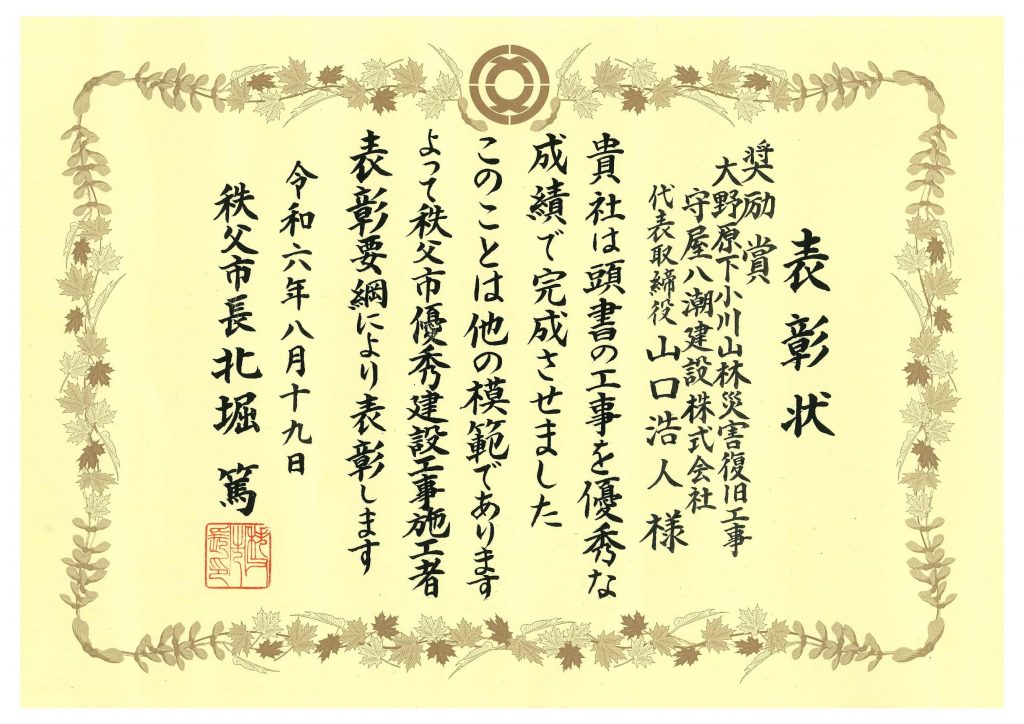 表彰状
奨励賞
大野原下小川山林災害復旧工事
守屋八潮建設株式会社
代表取締役 山口浩人 様
貴社は頭書の工事を優秀な
成績で完成させました
このことは他の模範であります
よって秩父市優秀建設工事施工者
表彰要綱により表彰します
令和六年八月十九日
秩父市長 北堀 篤